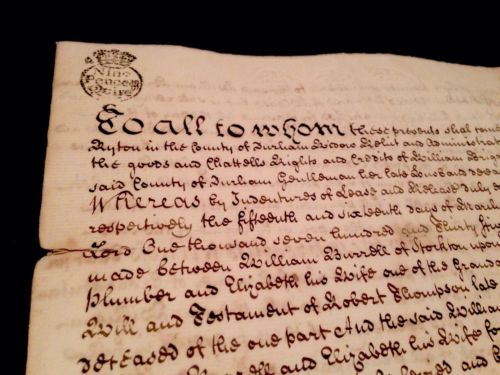 Nine
Pence
To all to whom these presents shall
Ryton in the County of Durham Widdow Relict and Administrat
the goods and Chattells Rights and Credits of William
said County of Durham Gentleman her late Husband dece
Whereas by Indentures of Lease and Release duly
respectively the fifteenth and sixteenth days of
Lord One thousand seven hundred and Thirty
made between William Burrell of Stockton upon
plumber and Elizabeth his Wife one of the Grand
Will and Testament of Robert Thompson late
deceased of the one part And the said William
and Elizabeth his Wife for